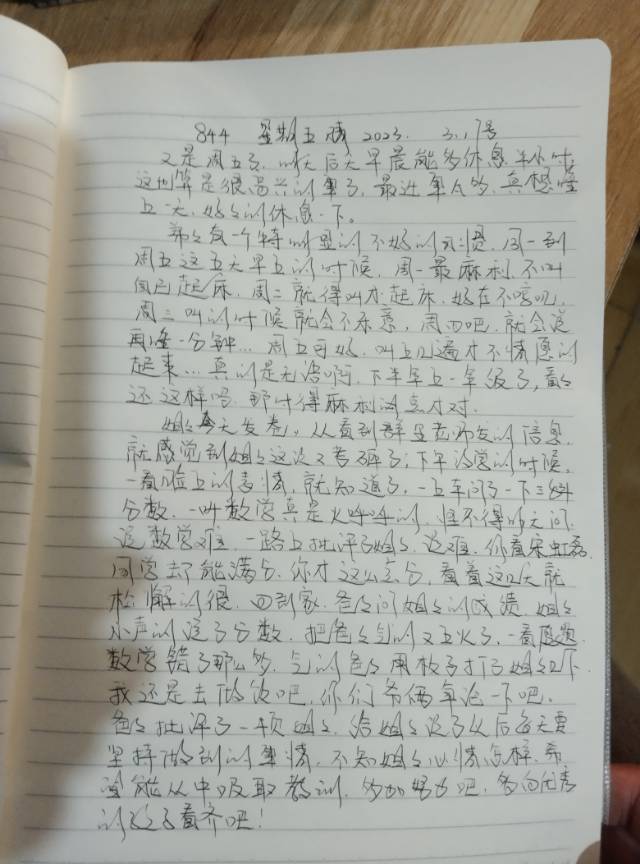 844 星期五晴 2023. 3.17号
又是周五了，明天后天早晨能多休息半小时
这也算是很高兴的事了，最近事太多，真想睡
上一天，好好的休息一下。
弟弟有一个特明显的不好的习惯，周一到
周五这五天早上的时候，周一最麻利，不叫
自己起床，周二就得叫才起床，好在不哼吧，
周三叫的时候就会不乐意，周四吧，就会说
再睡一分钟…周五可好，叫上几遍才不情愿的
起来…真的是无语啊，下半年上一年级了，看看
还这样吗，那时得麻利的点才对.
姐姐每天发卷，从看到群里老师发的信息，
就感觉到姐姐这次又考砸了；下午放学的时候，
一看脸上的表情，就知道了，一上车问了一下三科
分数，一听数学真是火呼呼的，怪不得昨天问，
说数学难，一路上批评了姐姐，说难，你看宋
同学却能满分，你才这么点分，看着这几天就
松懈的很，回到家，爸爸问姐姐的成绩，姐姐
小声的说了分数，把爸爸气的又上火了，一看
数学错了那么多，气的爸爸用板子打了姐姐几下
我还是去做饭吧，你们爷俩单论一下吧.
爸爸批评了一顿姐姐，给姐姐说了从后每天要
坚持做到的事情，不知姐姐心情怎样，希
望能从中吸取教训，多加努力吧，多向优秀
的孩子看齐吧！